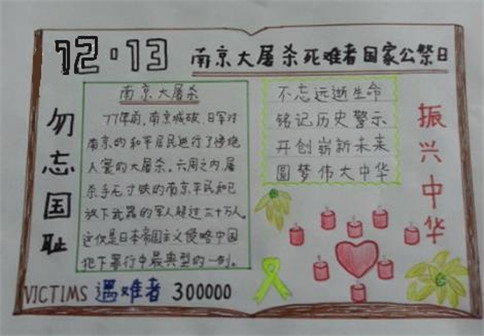 12·13
南京大屠杀死难者国家公祭日
勿忘国耻
南京大屠杀
77年前,南京城破,日军对
南京的和平居民进行了惨绝
人寰的大屠杀。六周之内屠
杀手无寸铁的南京平民和已
放下武器的军人超过三十万人。
这仅是日本帝国主义侵略中国
犯下罪行中最典型的一例。
不忘远逝生命
铭记历史警示
开创崭新未来
圆梦伟大中华
振兴中华
VICTIMS 遇难者 300000